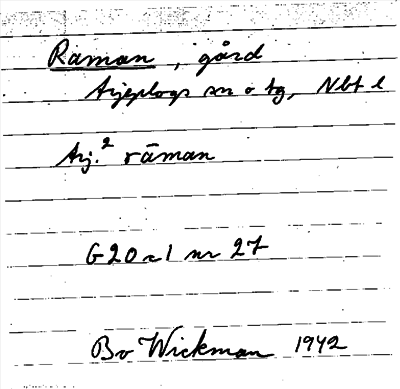 Raman, gård
Arjeplogs sn o tg, Nbt l
Arj. ² rāman
G20a1 nr 27
Bo Wickman 1942